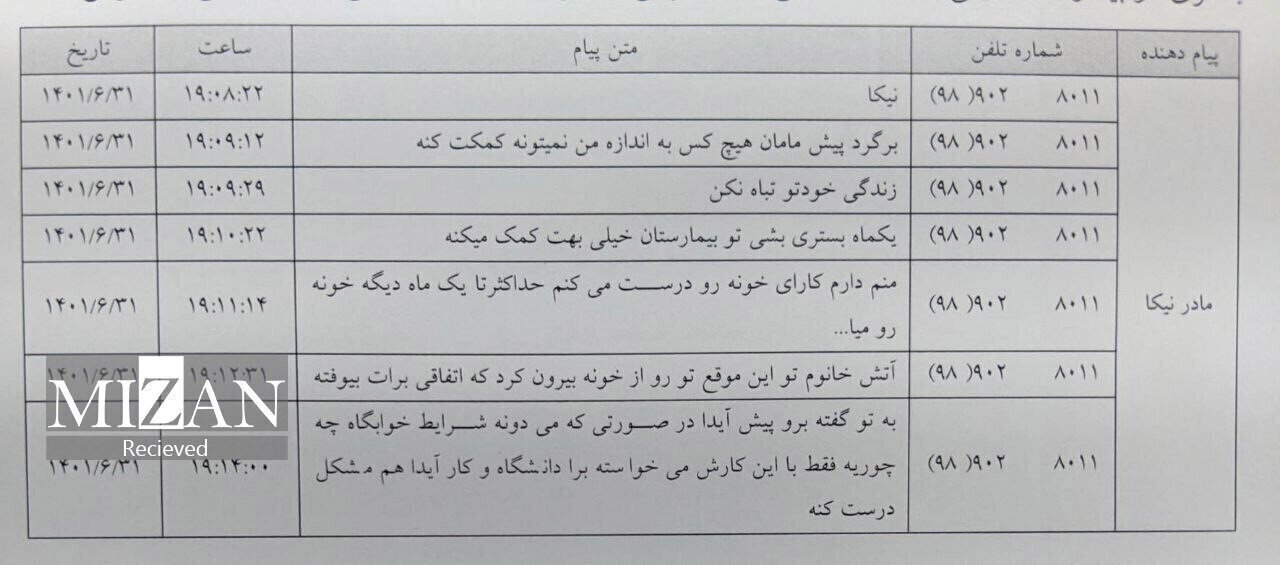 پیام دهنده شماره تلفن متن پیام ساعت تاریخ
مادر نیکا
۸۰۱۱ ۹۰۲( ۹۸) نیکا ۱۹:۰۸:۲۲ ۱۴۰۱/۶/۳۱
۸۰۱۱ ۹۰۲( ۹۸) برگرد پیش مامان هیچ کس به اندازه من نمیتونه کمکت کنه ۱۹:۰۹:۱۲ ۱۴۰۱/۶/۳۱
۸۰۱۱ ۹۰۲( ۹۸) زندگی خودتو تباه نکن ۱۹:۰۹:۲۹ ۱۴۰۱/۶/۳۱
۸۰۱۱ ۹۰۲( ۹۸) یکماه بستری بشی تو بیمارستان خیلی بهت کمک میکنه ۱۹:۱۰:۲۲ ۱۴۰۱/۶/۳۱
۸۰۱۱ ۹۰۲( ۹۸) منم دارم کارای خونه رو درست می کنم حداکثرتا یک ماه دیگه خونه ۱۹:۱۱:۱۴ ۱۴۰۱/۶/۳۱
رو میا...
۸۰۱۱ ۹۰۲( ۹۸) آتش خانوم تو این موقع تو رو از خونه بیرون کرد که اتفاقی برات بیوفته ۱۹:۱۲:۳۱ ۱۴۰۱/۶/۳۱
به تو گفته برو پیش آیدا در صورتی که می دونه شرایط خوابگاه چه
۸۰۱۱ ۹۰۲( ۹۸) چوریه فقط با این کارش می خواسته برا دانشگاه و کار آیدا هم مشکل ۱۹:۱۴:۰۰ ۱۴۰۱/۶/۳۱
درست کنه
MIZAN
Recieved